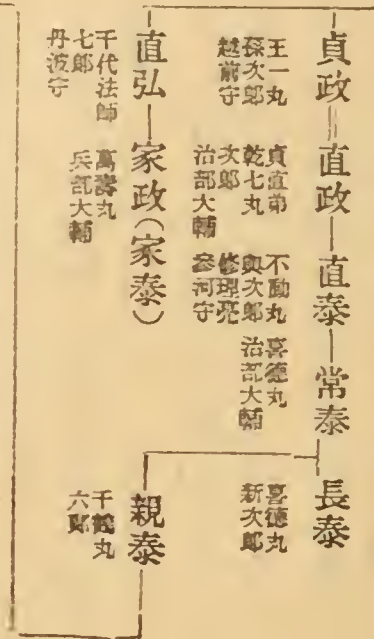 貞政＝直政―直泰―常泰
長泰
王一丸
孫次郎
越前守
貞直弟
乾七丸
次郎
治部大輔
不動丸
與次郎
修理亮
參河守
喜德丸
治部大輔
喜德丸
新次郎
直弘―家政(家泰)
親泰
千代法師
七郎
丹波守
萬壽丸
兵部大輔
千鶴丸
六郎